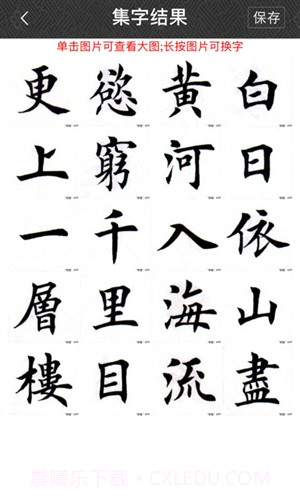 集字结果
保存
单击图片可查看大图;长按图片可换字
白日依山盡
黄河入海流
慾窮千里目
更上一層樓
晨曦乐下载·CXLEDU.COM